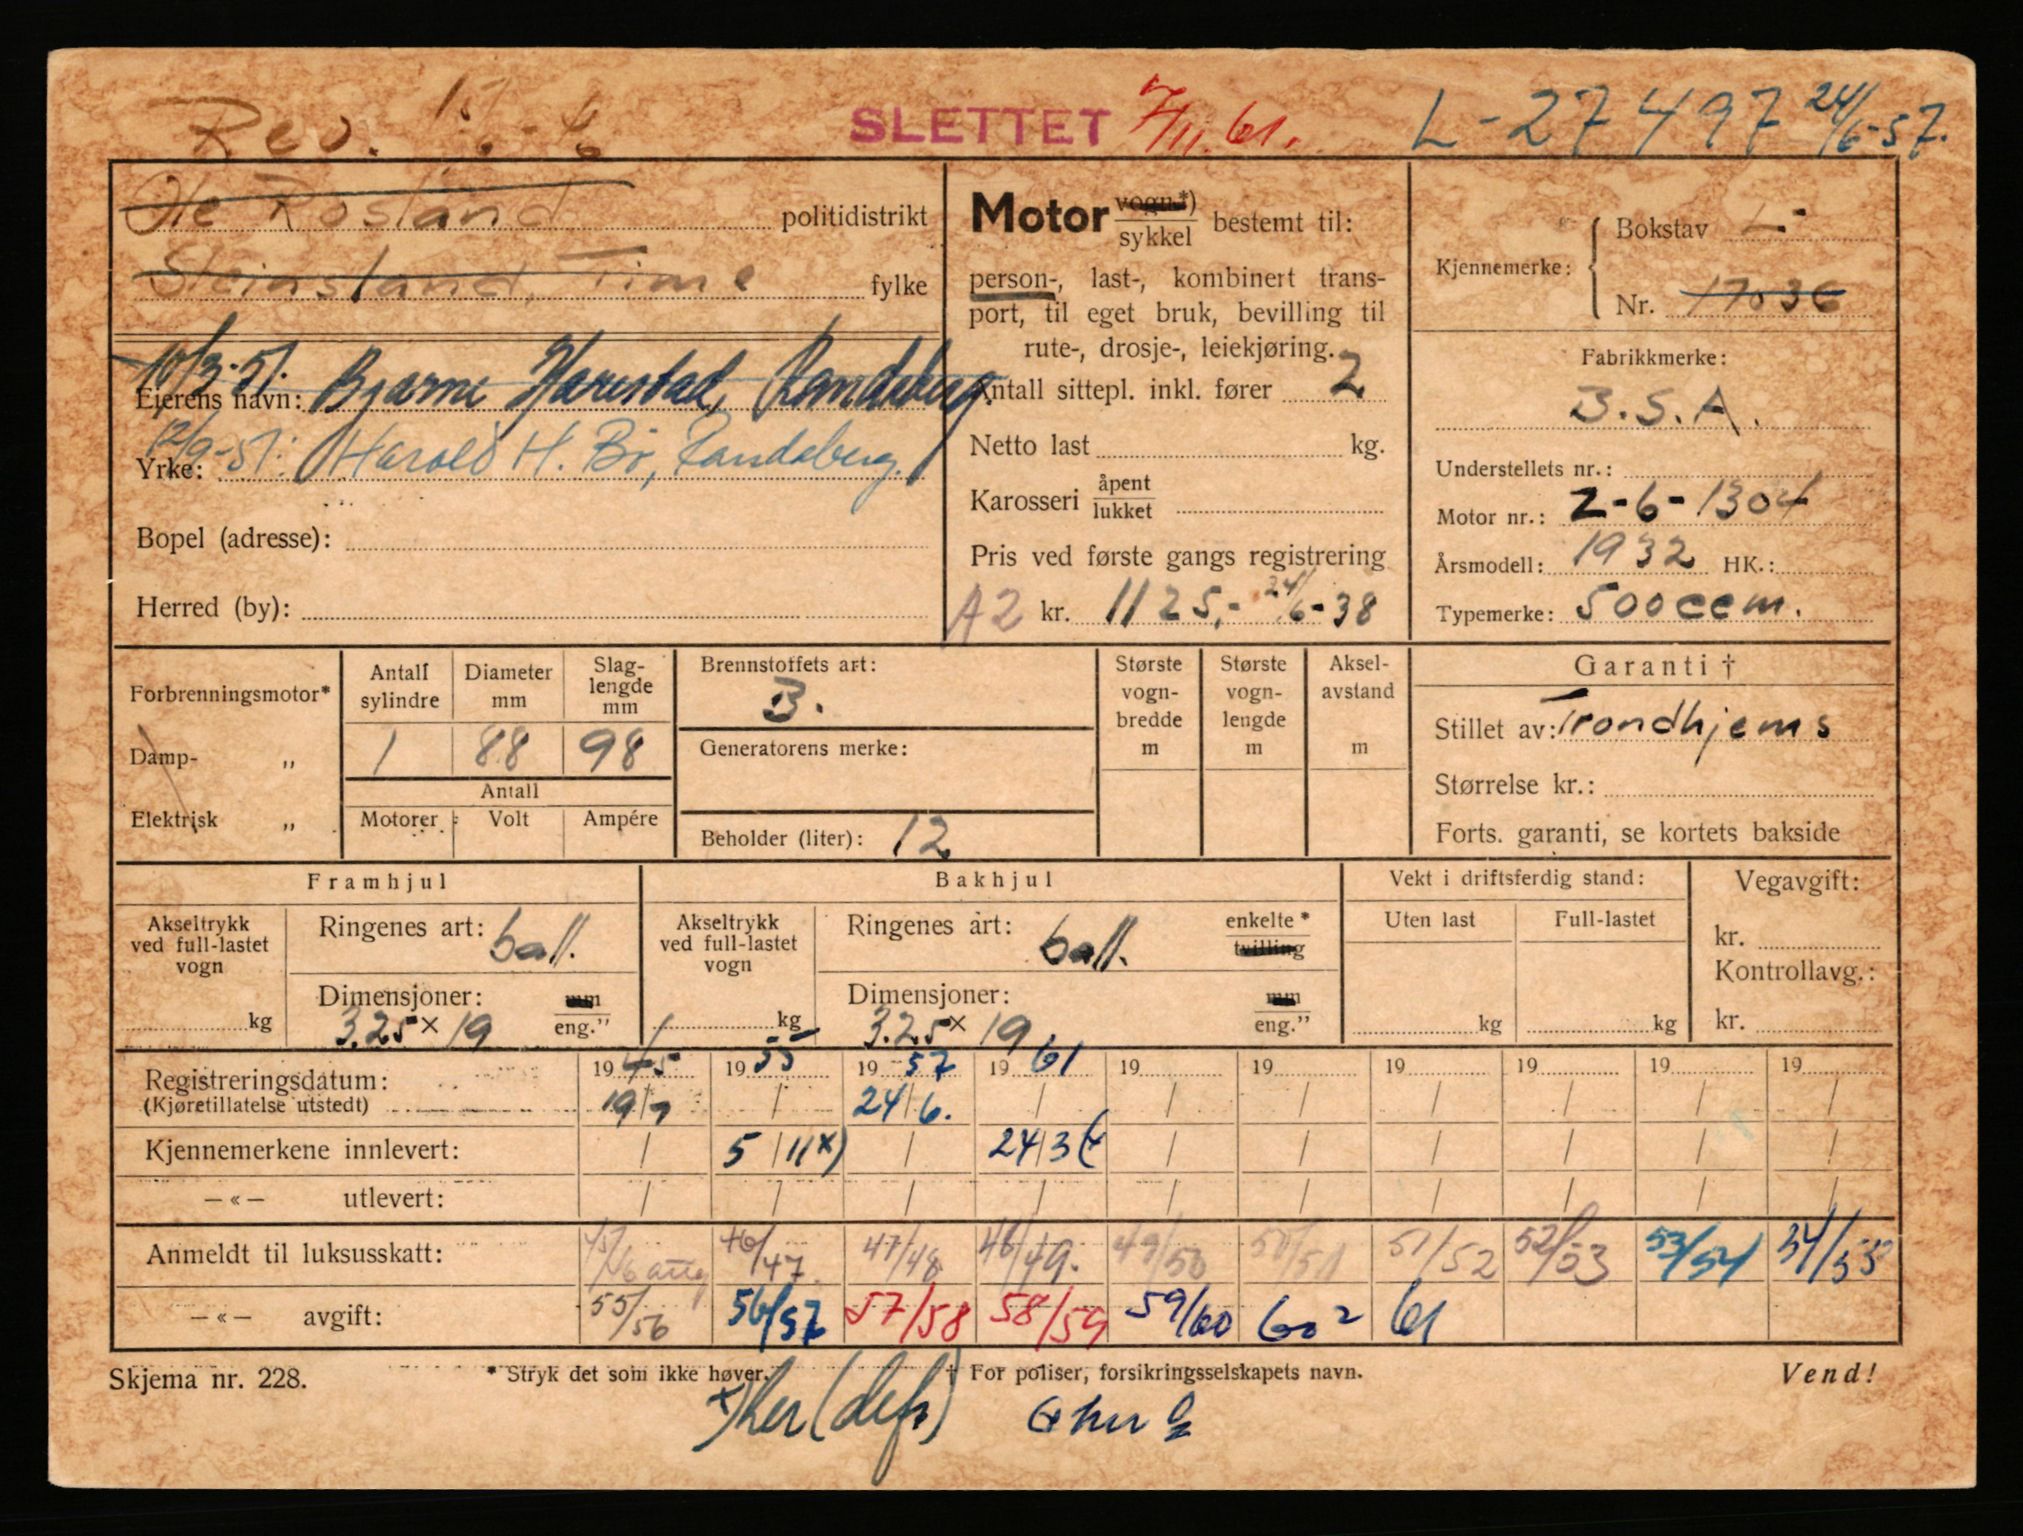 Rev.
SLETTET 7/11.61.
L-27497 24/6-57.
Ole Rosland politidistrikt
Steinsland, Time fylke
10/3-51. Bjarne Harestad, Randeberg.
Eierens navn:
12/9-57: Harald H. Bø, Randaberg.
Yrke:
Bopel (adresse):
Herred (by):
Motor vogn*)/sykkel bestemt til:
person-, last-, kombinert trans-
port, til eget bruk, bevilling til
rute-, drosje-, leiekjøring.
Antall sittepl. inkl. fører 2
Netto last kg.
Karosseri åpent/lukket
Pris ved første gangs registrering
A2 kr. 1125,- 24/6-38
Kjennemerke: Bokstav L-
Nr. 17036
Fabrikkmerke:
B.S.A.
Understellets nr.:
Motor nr.: Z-6-1304
Årsmodell: 1932 HK.:
Typemerke: 500ccm.
Forbrenningsmotor*
Damp- „
Elektrisk „
Antall sylindre Diameter mm Slag-lengde mm
1 88 98
Antall
Motorer Volt Ampére
Brennstoffets art:
B.
Generatorens merke:
Beholder (liter): 12
Største vogn-bredde m
Største vogn-lengde m
Aksel-avstand m
Garanti †
Stillet av: Trondhjems
Størrelse kr.:
Forts. garanti, se kortets bakside
Framhjul
Akseltrykk ved full-lastet vogn kg
Ringenes art: ball.
Dimensjoner: mm/eng."
3.25 x 19
Bakhjul
Akseltrykk ved full-lastet vogn kg
Ringenes art: ball. enkelte*/tvilling
Dimensjoner: mm/eng."
3.25 x 19
Vekt i driftsferdig stand:
Uten last Full-lastet
kg kg
Vegavgift:
kr.
Kontrollavg.:
kr.
Registreringsdatum: 1945 1955 1957 1961 19 19 19 19 19 19
(Kjøretillatelse utstedt) 19/7 / 24/6. / / / / / / /
Kjennemerkene innlevert: / 5/11x) / 24/3 / / / / / /
—«— utlevert: / / / / / / / / / /
Anmeldt til luksusskatt: 46/47. 47/48 48/49. 49/50 50/51 51/52 52/53 53/54 54/55
—«— avgift: 55/56 56/57 57/58 58/59 59/60 60² 61
Skjema nr. 228.
* Stryk det som ikke høver.
† For poliser, forsikringsselskapets navn.
Vend!
x) her (def.)